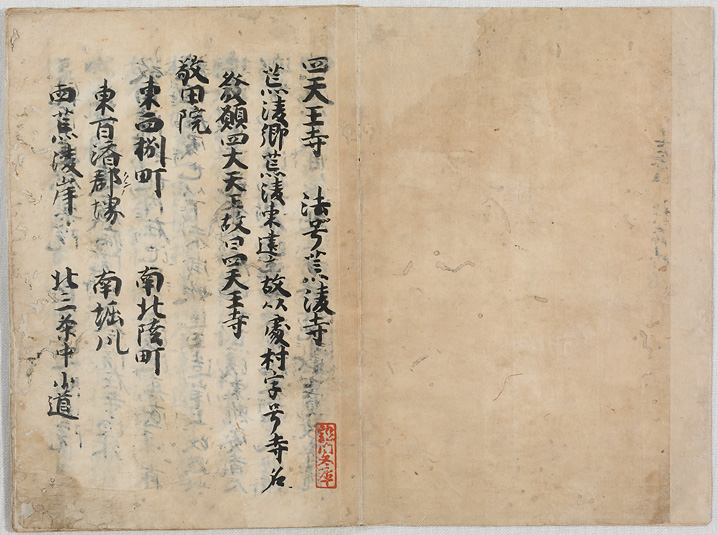 四天王寺　法号荒陵寺
荒陵郷荒陵東建立故以處村字号寺名
發願四大天王故曰四天王寺
敬田院
東西捌町　南北陸町
東百濟郡堺　南堀川
西荒陵岸　北三条中小道